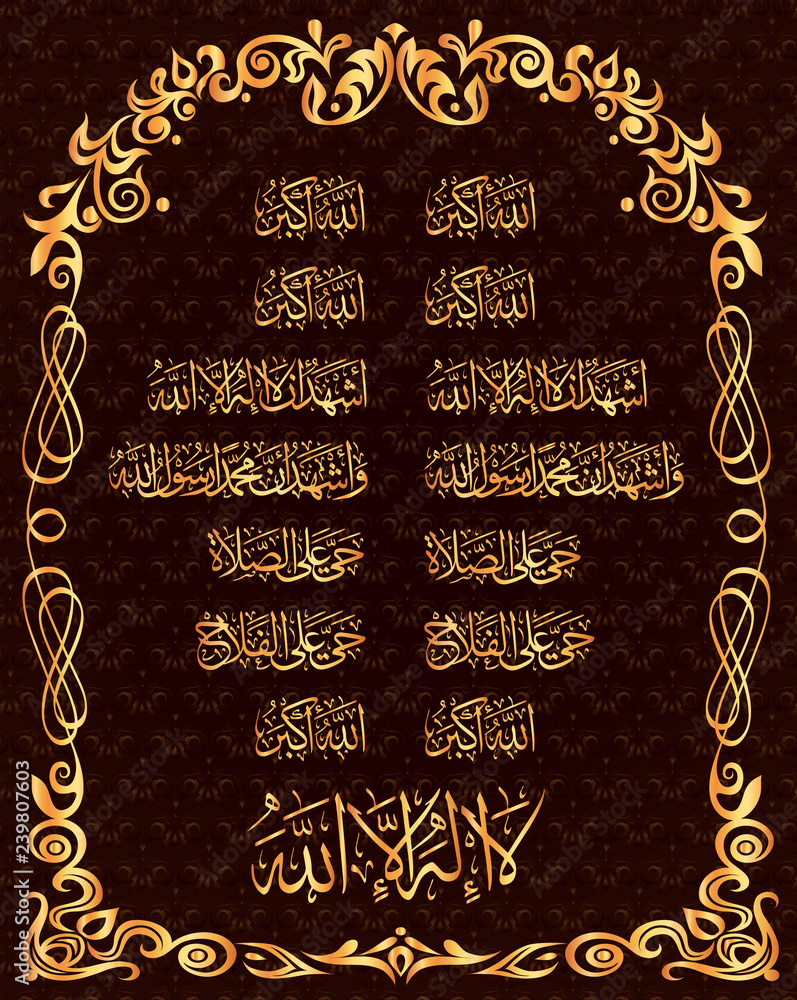 اللَّهُ أَكْبَرُ اللَّهُ أَكْبَرُ
اللَّهُ أَكْبَرُ اللَّهُ أَكْبَرُ
أَشْهَدُ أَن لَا إِلَهَ إِلَّا اللَّهُ أَشْهَدُ أَن لَا إِلَهَ إِلَّا اللَّهُ
وَأَشْهَدُ أَنَّ مُحَمَّدًا رَسُولُ اللَّهِ وَأَشْهَدُ أَنَّ مُحَمَّدًا رَسُولُ اللَّهِ
حَيَّ عَلَى الصَّلَاةِ حَيَّ عَلَى الصَّلَاةِ
حَيَّ عَلَى الفَلَاحِ حَيَّ عَلَى الفَلَاحِ
اللَّهُ أَكْبَرُ اللَّهُ أَكْبَرُ
لَا إِلَهَ إِلَّا اللَّهُ
Adobe Stock | #239807603